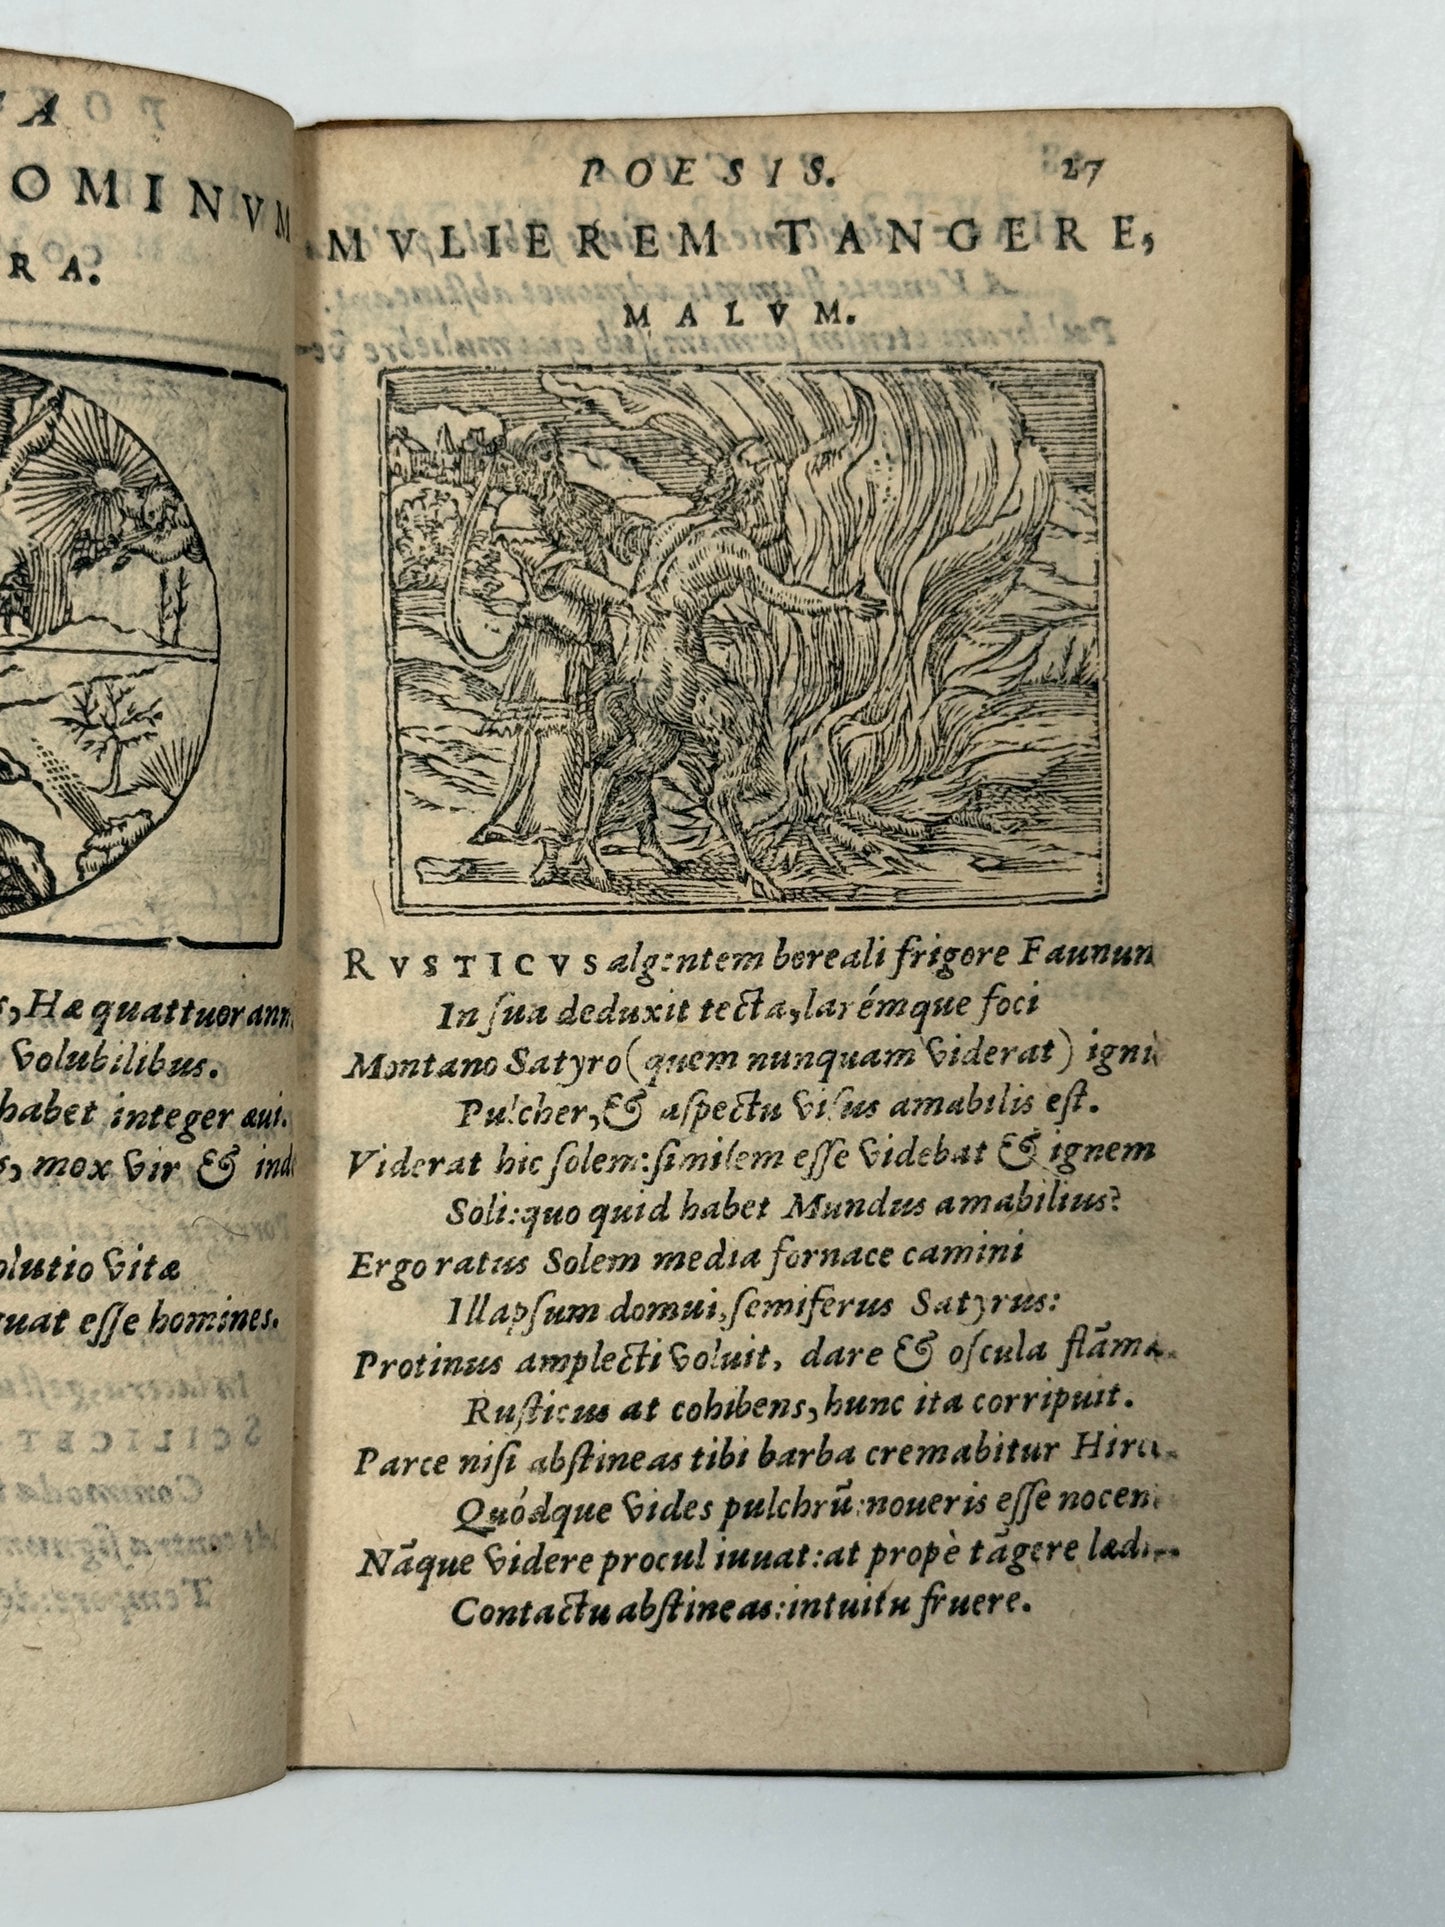 A
OMINVM
RA.
s, Hæ quattuor anni
volubilibus.
habet integer æui.
s, mox vir & inde
olutio vitæ
quat eſſe homines.
POESIS. 27
MVLIEREM TANGERE,
MALVM.
RVSTICVS algentem boreali frigore Faunum
In ſua deduxit tecta, larémque foci
Montano Satyro (quem nunquam viderat) ignis
Pulcher, & aſpectu viſus amabilis eſt.
Viderat hic ſolem: ſimilem eſſe videbat & ignem
Soli: quo quid habet Mundus amabilius?
Ergo ratus Solem media fornace camini
Illapſum domui, ſemiferus Satyrus:
Protinus amplecti voluit, dare & oſcula flāmæ.
Ruſticus at cohibens, hunc ita corripuit.
Parce niſi abſtineas tibi barba cremabitur
Quódque vides pulchrū: noueris eſſe
Nāque videre procul iuuat: at propè tāgere
Contactu abſtineas: intuitu fruere.